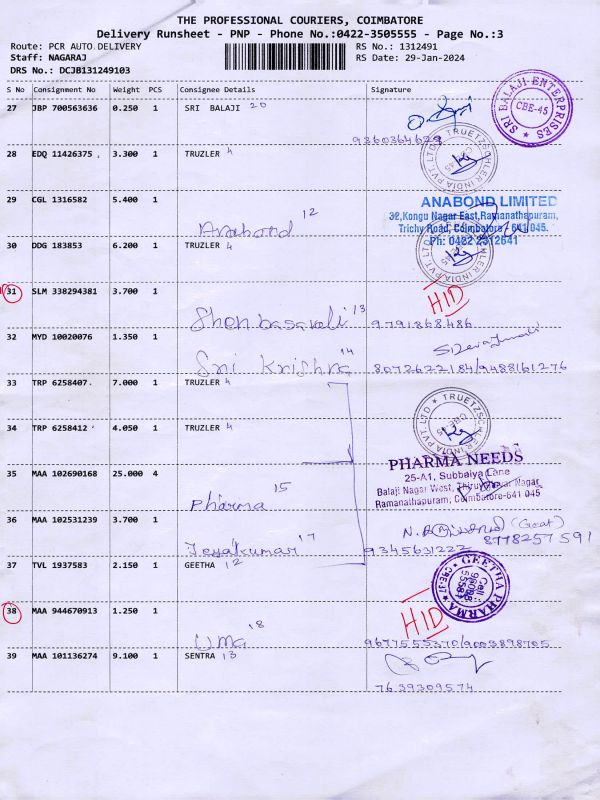 THE PROFESSIONAL COURIERS, COIMBATORE
Delivery Runsheet - PNP - Phone No.:0422-3505555 - Page No.:3
Route: PCR AUTO DELIVERY RS No.: 1312491
Staff: NAGARAJ RS Date: 29-Jan-2024
DRS No.: DCJB131249103
S No Consignment No Weight PCS Consignee Details Signature
27 JBP 700563636 0.250 1 SRI BALAJI 20
SRI BALAJI ENTERPRISES CBE-45
9360364629
28 EDQ 11426375 3.300 1 TRUZLER 4
TRUETZSCHLER INDIA PVT LTD CBE 45
29 CGL 1316582 5.400 1
Anabond 12
ANABOND LIMITED
32,Kongu Nagar East,Ramanathapuram,
Trichy Road, Coimbatore - 641 045.
Ph: 0422 2312641
30 DDG 183853 6.200 1 TRUZLER 4
31 SLM 338294381 3.700 1
HID
Shenbagavali 13 9791868486
32 MYD 10020076 1.350 1
Sri Krishna 14 8072622184/9488161276
33 TRP 6258407 7.000 1 TRUZLER 4
TRUETZSCHLER INDIA PVT LTD CBE 45
34 TRP 6258412 4.050 1 TRUZLER 4
35 MAA 102690168 25.000 4
Pharma 15
PHARMA NEEDS
25-A1, Subbaiya Lane
Balaji Nagar West, Thiruvalluvar Nagar
Ramanathapuram, Coimbatore-641 045
36 MAA 102531239 3.700 1
8778257591
Jeyakumar 17 9345631222
37 TVL 1937583 2.150 1 GEETHA 12
GEETHA PHARMA CBE-37
38 MAA 944670913 1.250 1
HID
UMA 18 9677555370/9003898705
39 MAA 101136274 9.100 1 SENTRA 13
7639309574